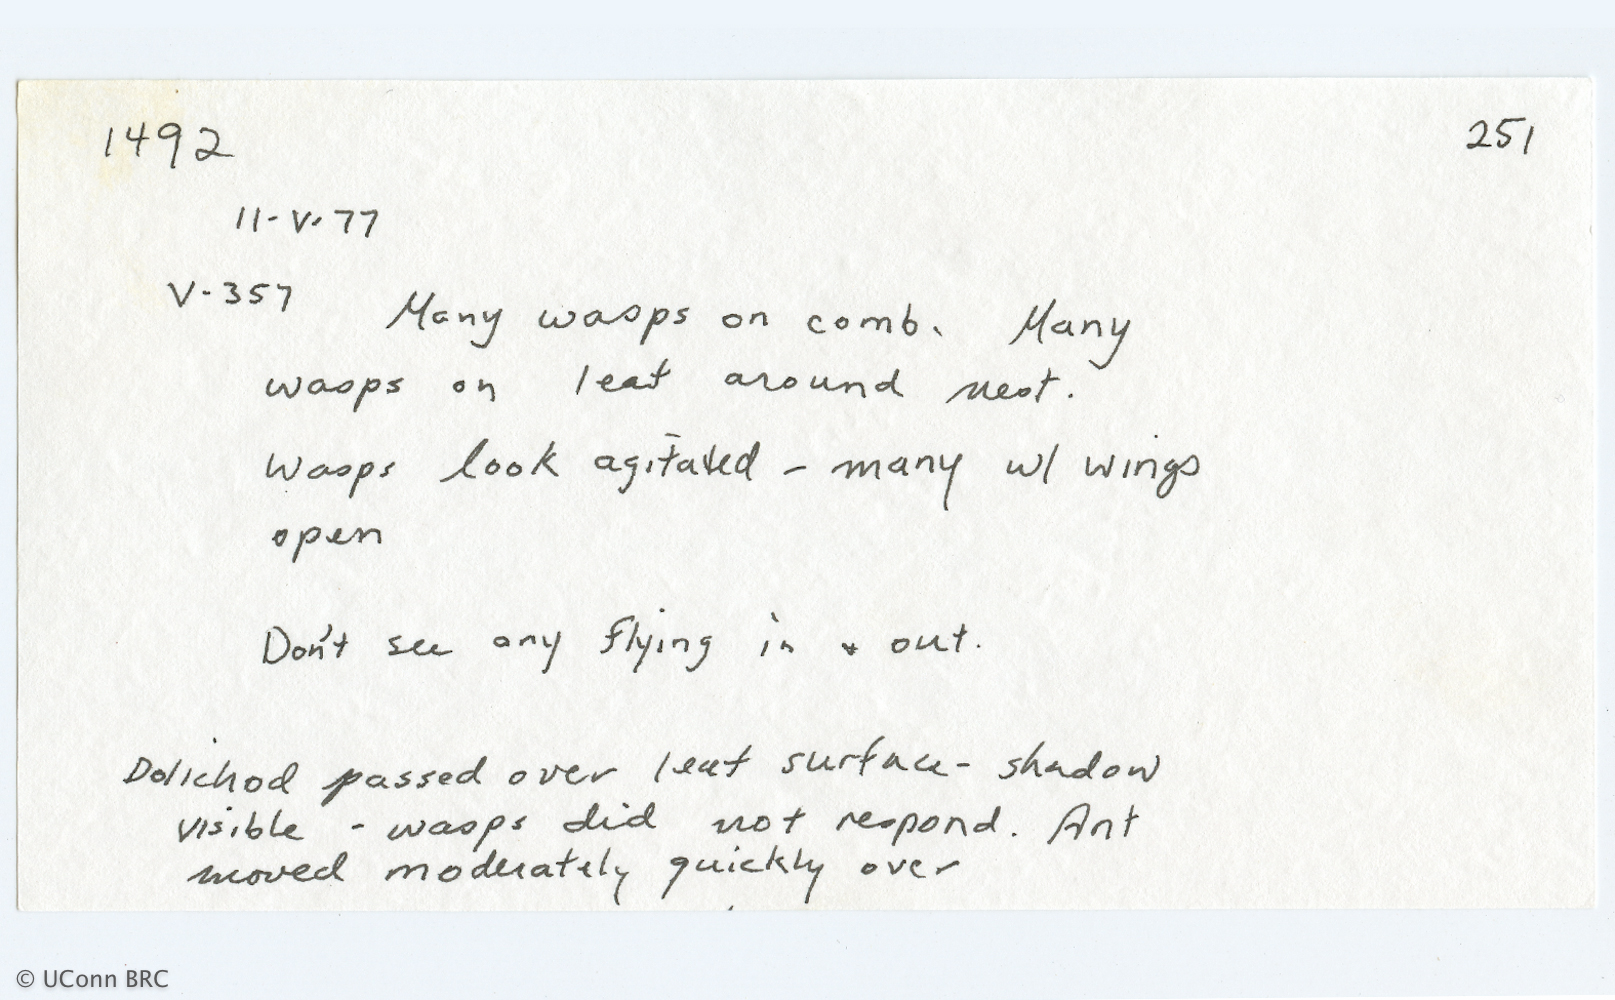 1492 251
11-V-77
V-357 Many wasps on comb. Many
wasps on leaf around nest.
Wasps look agitated - many w/ wings
open
Don't see any flying in + out.
Dolichod passed over leaf surface - shadow
visible - wasps did not respond. Ant
moved moderately quickly over
© UConn BRC